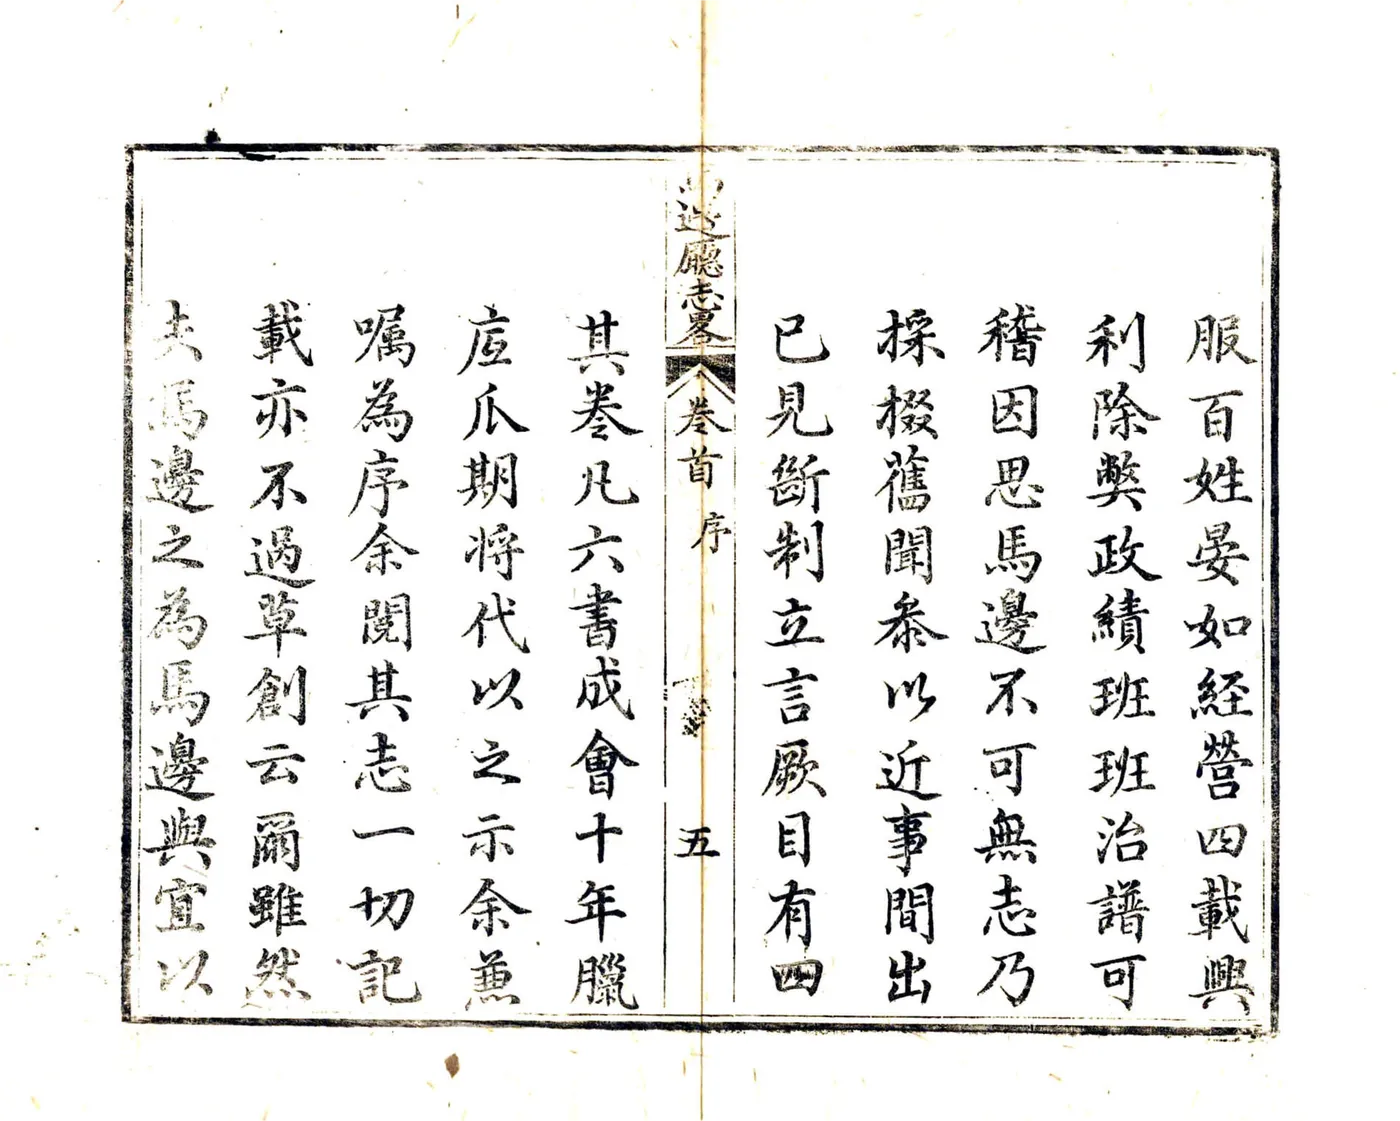 服百姓晏如経營四載興
利除獘政績班班治譜可
稽因思馬邊不可無志乃
採掇舊聞叅以近事間出
已見斷制立言厥目有四
馬邊廳志畧
卷首
序
五
其卷凡六書成會十年臘
底瓜期将代以之示余兼
嘱為序余閱其志一切記
載亦不過草創云爾雖然
夫馬邊之為馬邊與宜以